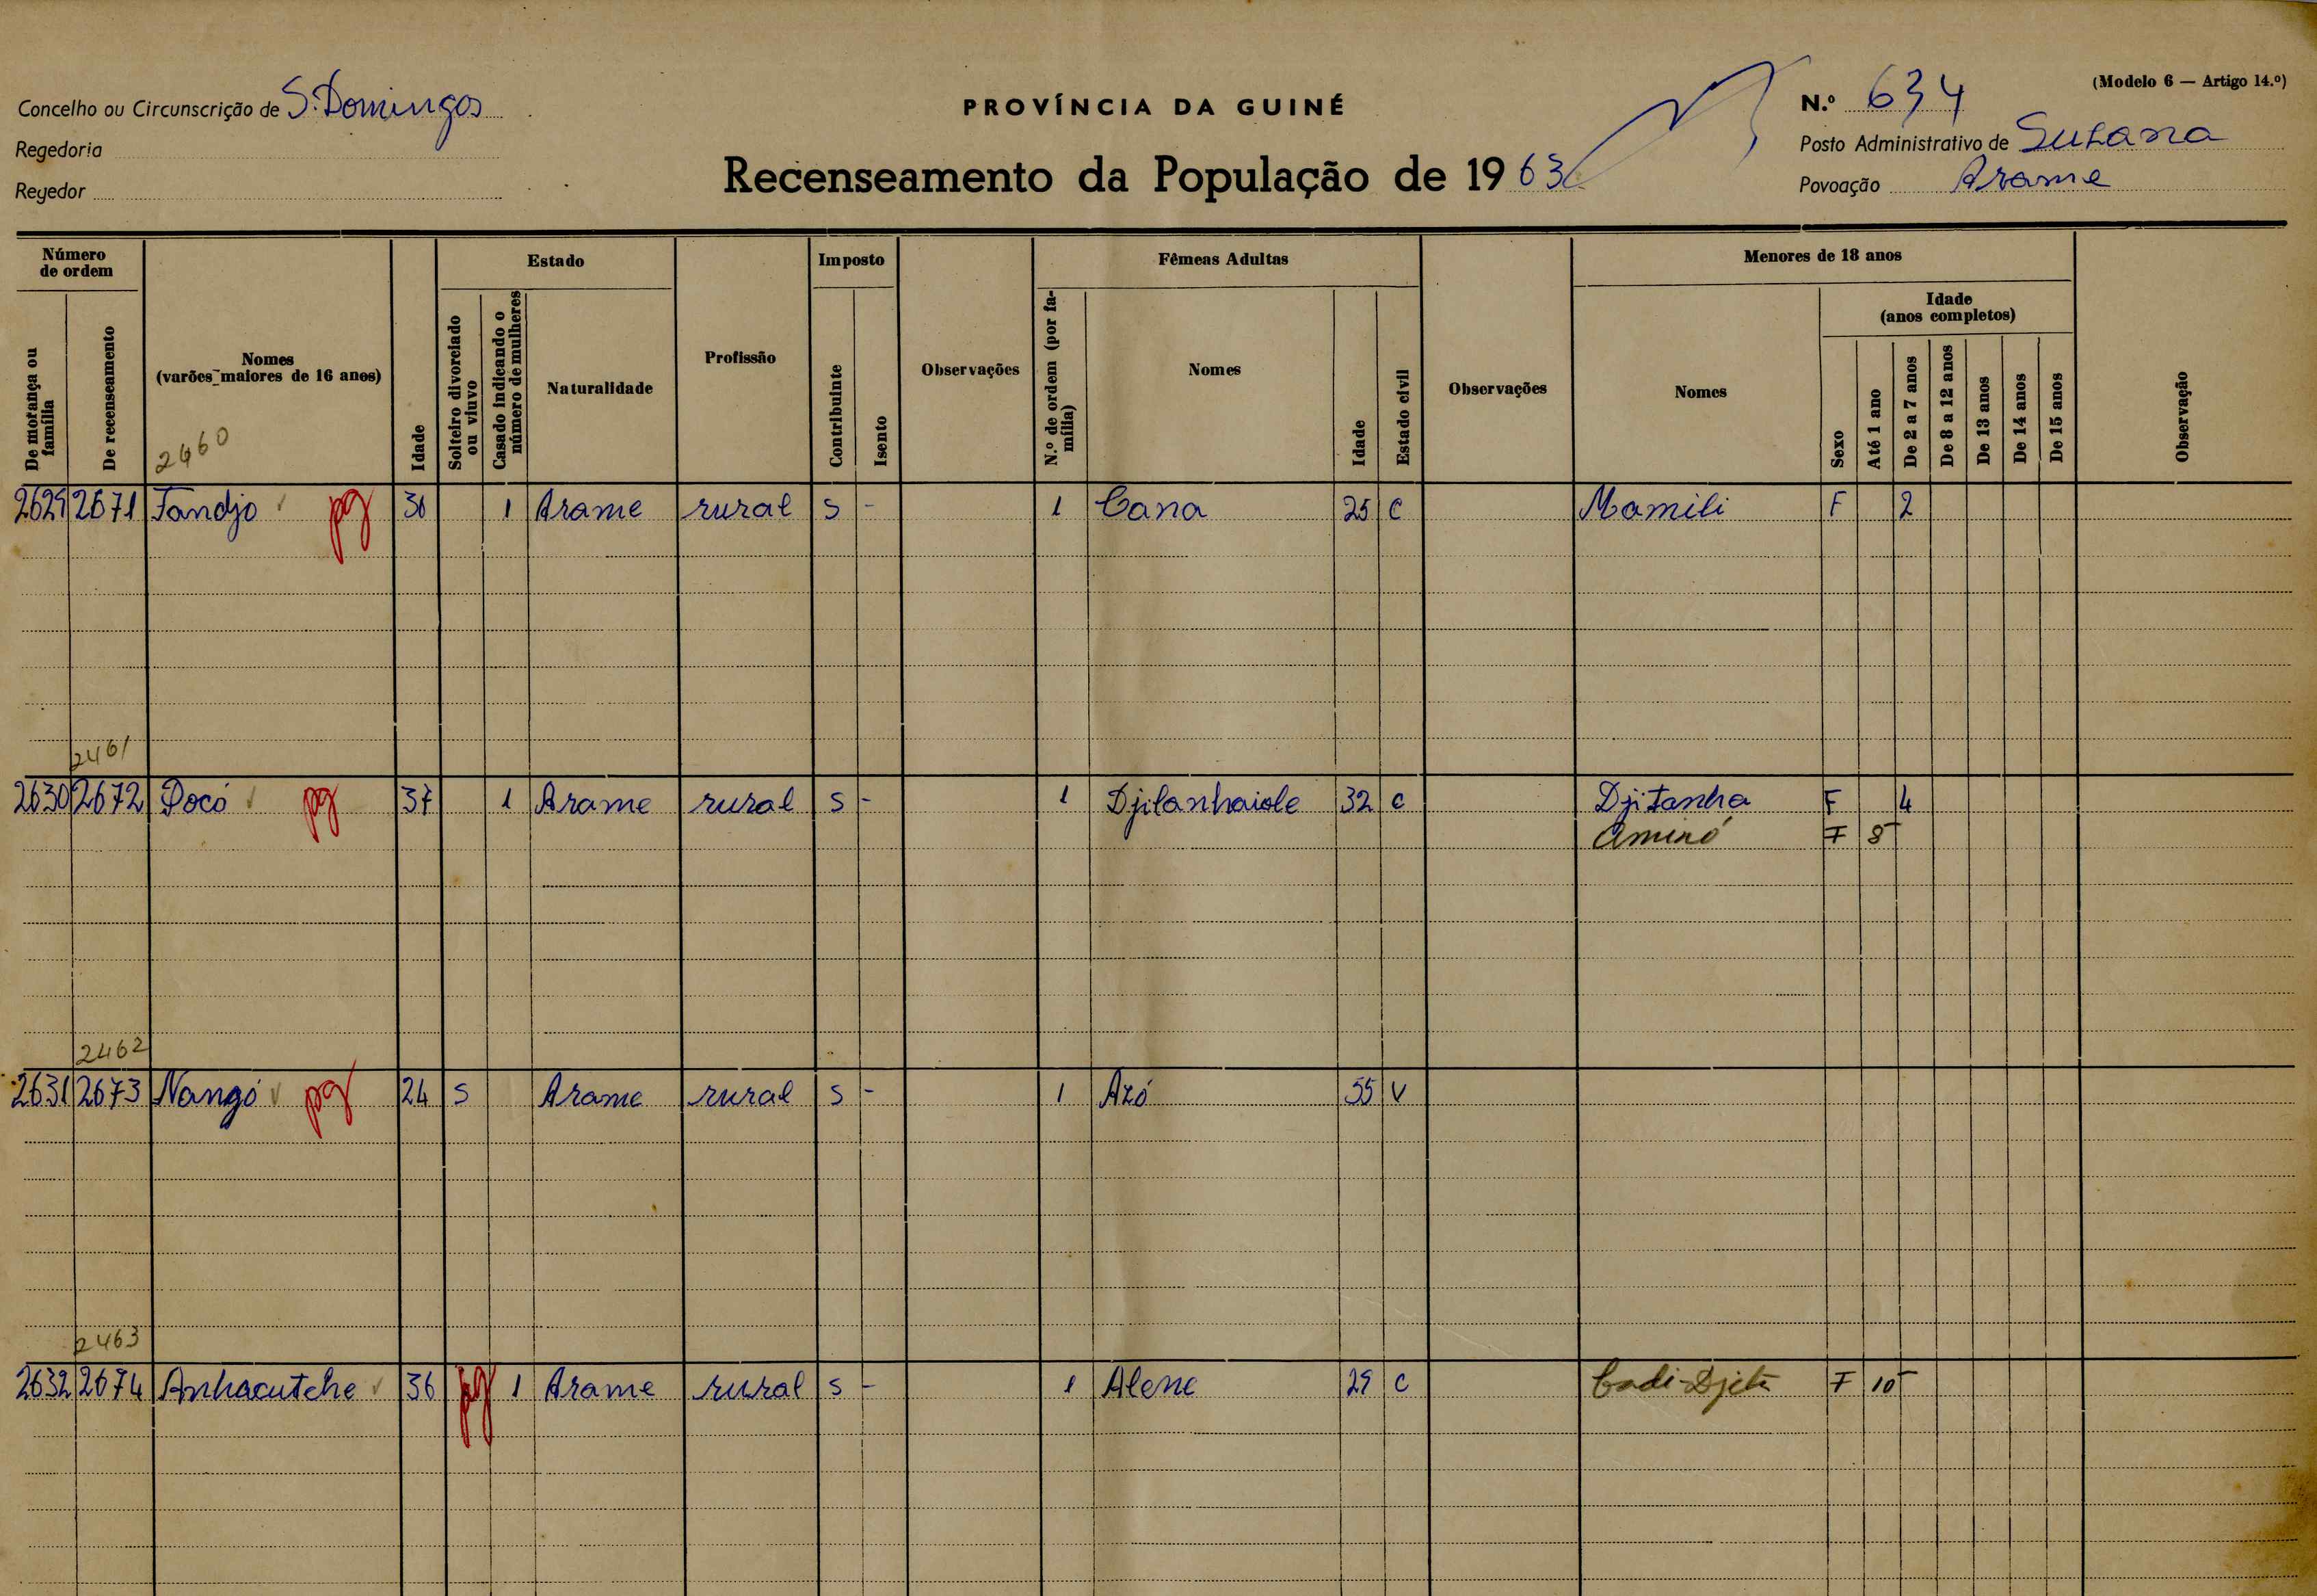 (Modelo 6 — Artigo 14.º)
Concelho ou Circunscrição de S. Domingos
PROVÍNCIA DA GUINÉ
N.º 634
Regedoria
Posto Administrativo de Suzana
Regedor
Recenseamento da População de 1963
Povoação Arame
Número de ordem
Estado
Imposto
Fêmeas Adultas
Menores de 18 anos
De morança ou família
De recenseamento
Nomes (varões maiores de 16 anos)
Idade
Solteiro divorciado ou viuvo
Casado indicando o número de mulheres
Naturalidade
Profissão
Contribuinte
Isento
Observações
N.º de ordem (por família)
Nomes
Idade
Estado civil
Observações
Nomes
Sexo
Idade (anos completos)
Até 1 ano
De 2 a 7 anos
De 8 a 12 anos
De 13 anos
De 14 anos
De 15 anos
Observação
2460
2629 2671 Tandjo pg 36 1 Arame rural S - 1 Cana 25 C Mamili F 2
2461
2630 2672 Pocó pg 37 1 Arame rural S - 1 Djilanhaiole 32 C Djitanha F 4
Aminó F 8
2462
2631 2673 Nangó pg 24 S Arame rural S - 1 Azó 55 V
2463
2632 2674 Anhacutche 36 pg 1 Arame rural S - 1 Alene 29 C F 10